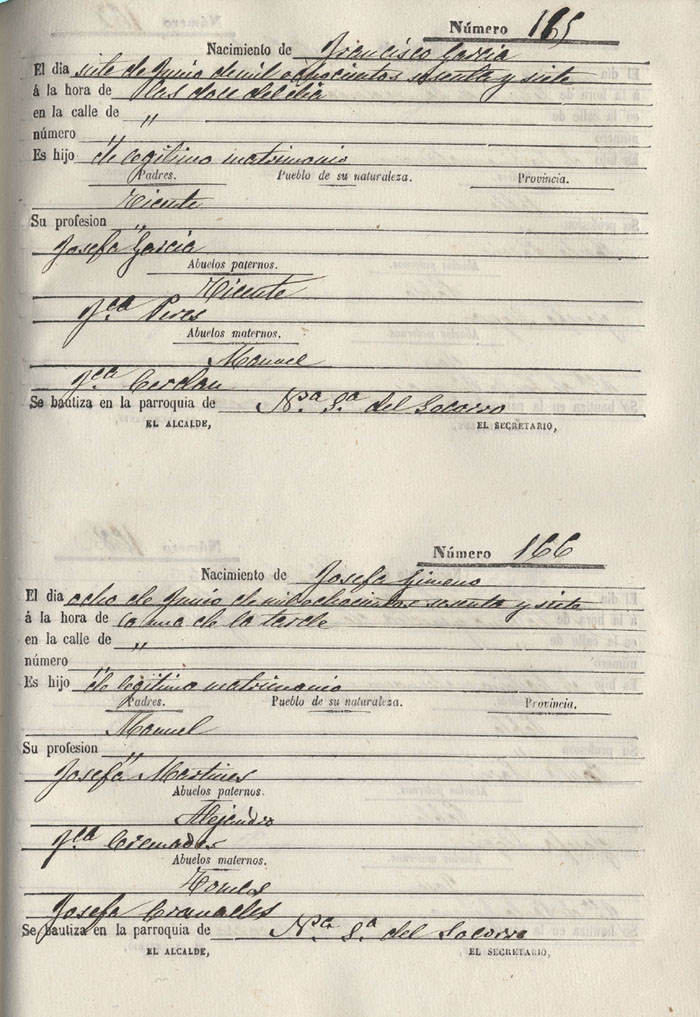 Número 165
Nacimiento de Francisco Garcia
El dia siete de Junio de mil ochocientos sesenta y siete
á la hora de las doce del dia
en la calle de "
número "
Es hijo de legitimo matrimonio
Padres. Pueblo de su naturaleza. Provincia.
Vicente
Su profesion "
Josefa Garcia
Abuelos paternos.
Vicente
Fca Peres
Abuelos maternos.
Manuel
Fca Cerdan
Se bautiza en la parroquia de Na. Sa. del Socorro
EL ALCALDE, EL SECRETARIO,
Número 166
Nacimiento de Josefa Gimeno
El dia ocho de Junio de mil ochocientos sesenta y siete
á la hora de la una de la tarde
en la calle de "
número "
Es hijo de legitimo matrimonio
Padres. Pueblo de su naturaleza. Provincia.
Manuel
Su profesion "
Josefa Martines
Abuelos paternos.
Alejandro
Fca Cremades
Abuelos maternos.
Tomas
Josefa
Se bautiza en la parroquia de Na. Sa. del Socorro
EL ALCALDE, EL SECRETARIO,